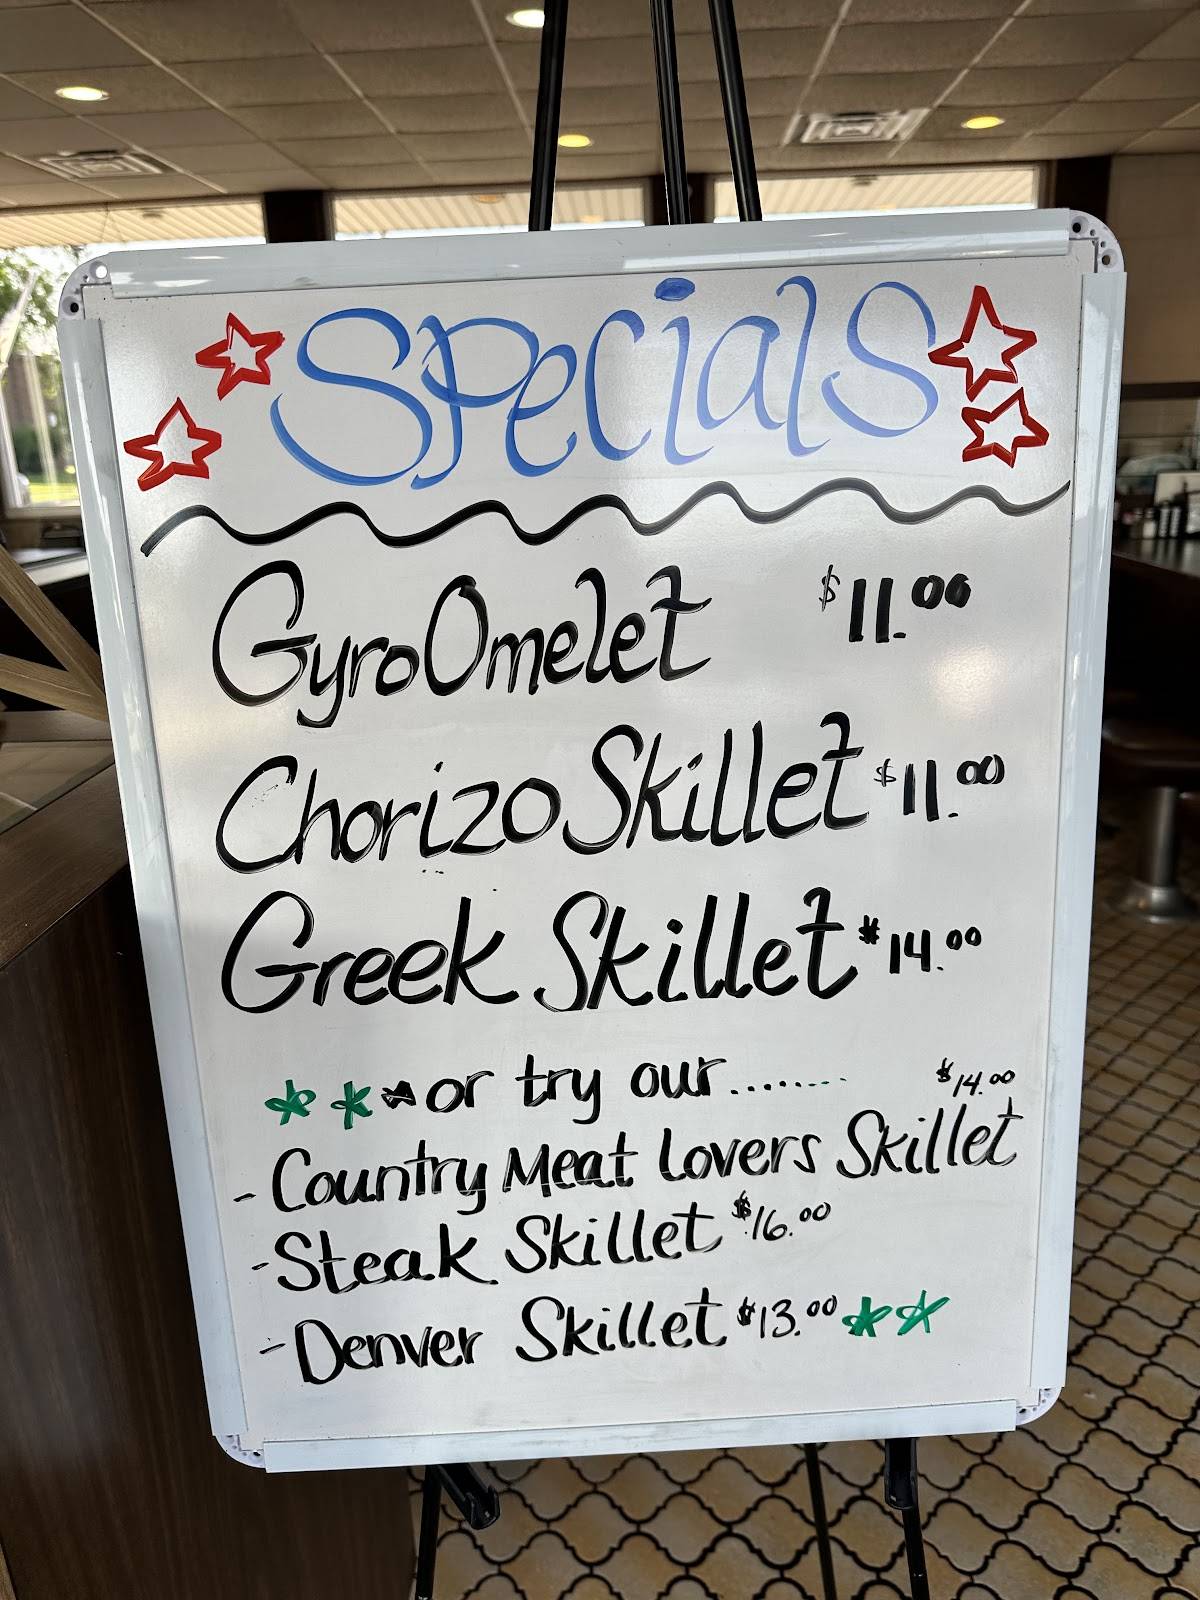 Specials
Gyro Omelet $11.00
Chorizo Skillet $11.00
Greek Skillet $14.00
***or try our........
$14.00
- Country Meat Lovers Skillet
- Steak Skillet $16.00
- Denver Skillet $13.00 **